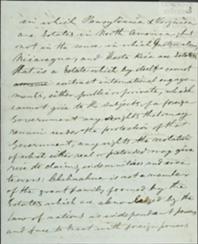 in which Pennsylvania & Virginia
are States in North America, but
not in the sense in which Guatemala
Nicaragua and Costa Rica are States
That is a State which by itself cannot
contract international engage
ments, either public or private, which
cannot give to the subjects of a foreign
Government any rights that may
remain under the protection of that
Government, any rights the violation
of which either real or pretended may give
rise to claims, indemnities and
Chihuahua is not a member
of the great family formed by the
States which are acknowledged by the
law of nations as independent powers
and free to treat with foreign powers